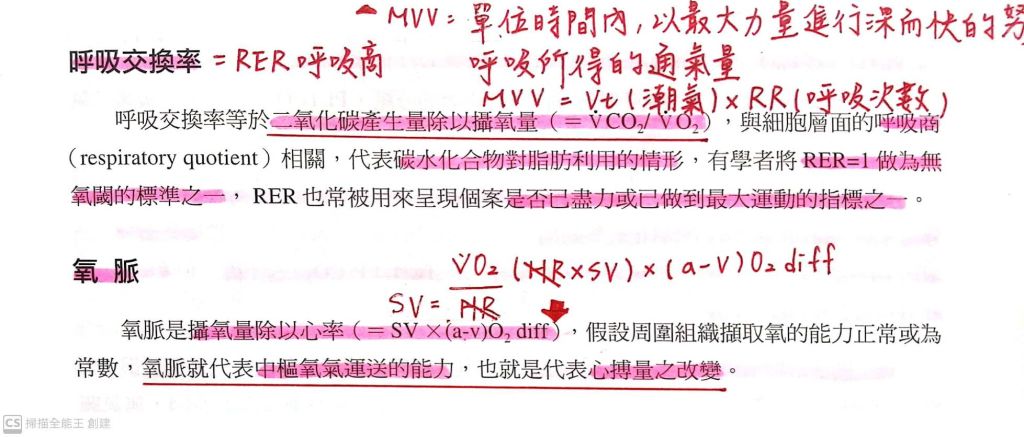 ▲ MVV = 單位時間內, 以最大力量進行深而快的努
呼吸交換率 = RER 呼吸商 呼吸所得的通氣量
MVV = Vt (潮氣) × RR (呼吸次數)
呼吸交換率等於二氧化碳產生量除以攝氧量(= V̇CO₂/ V̇O₂),與細胞層面的呼吸商
(respiratory quotient)相關,代表碳水化合物對脂肪利用的情形,有學者將 RER=1 做為無
氧閾的標準之一, RER 也常被用來呈現個案是否已盡力或已做到最大運動的指標之一。
氧 脈
V̇O₂ (HR×SV) × (a-v)O₂ diff
SV = HR
氧脈是攝氧量除以心率(= SV ×(a-v)O₂ diff),假設周圍組織擷取氧的能力正常或為
常數,氧脈就代表中樞氧氣運送的能力,也就是代表心搏量之改變。
CS 掃描全能王 創建